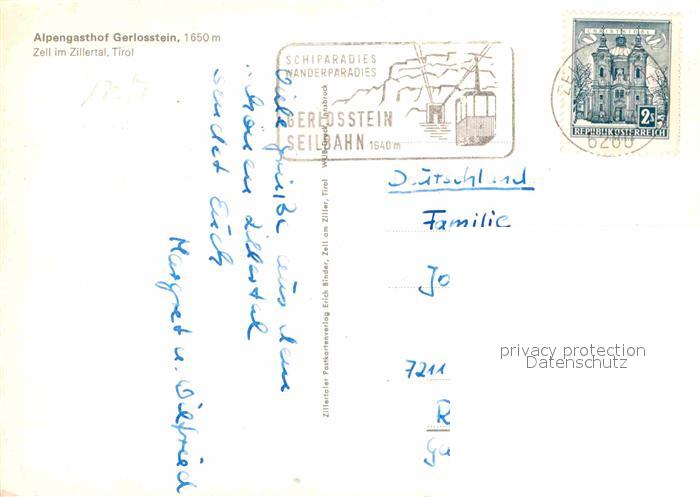 Alpengasthof Gerlosstein, 1650 m
Zell im Zillertal, Tirol
SCHIPARADIES
WANDERPARADIES
GERLOSSTEIN
SEILBAHN 1640 m
CHRISTKINDL
2S
REPUBLIK ÖSTERREICH
6280
Viele Grüße aus dem
schönen Zillertal
sendet Euch
Margret u. Wilfried
Zillertaler Postkartenverlag Erich Binder, Zell am Ziller, Tirol WUB-Druck, Innsbruck
Deutschland
Familie
Jo
7211
R
Ga
privacy protection
Datenschutz